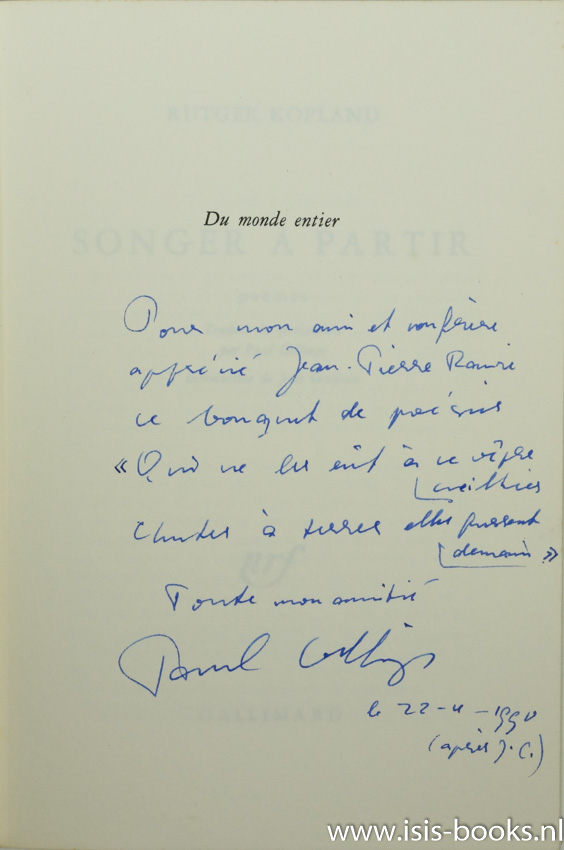 RUTGER KOPLAND
Du monde entier
SONGER A PARTIR
poèmes
Pour mon ami et confrère
apprécié Jean-Pierre
ce bouquet de poésies
« Qui ne les eût à ce vêpre
cueillies
Chutes à terre elles fussent
demain »
nrf
Toute mon amitié
Paul
GALLIMARD
le 22-4-1990
(après J.C.)
www.isis-books.nl